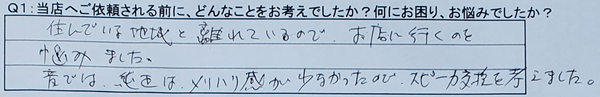 Q1:当店へご依頼される前に、どんなことをお考えでしたか？何にお困り、お悩みでしたか？
住んでいる地域と離れているので、お店に行くのを
悩みました。
音では、純正は、メリハリ感が少なかったので、スピーカ交換を考えました。